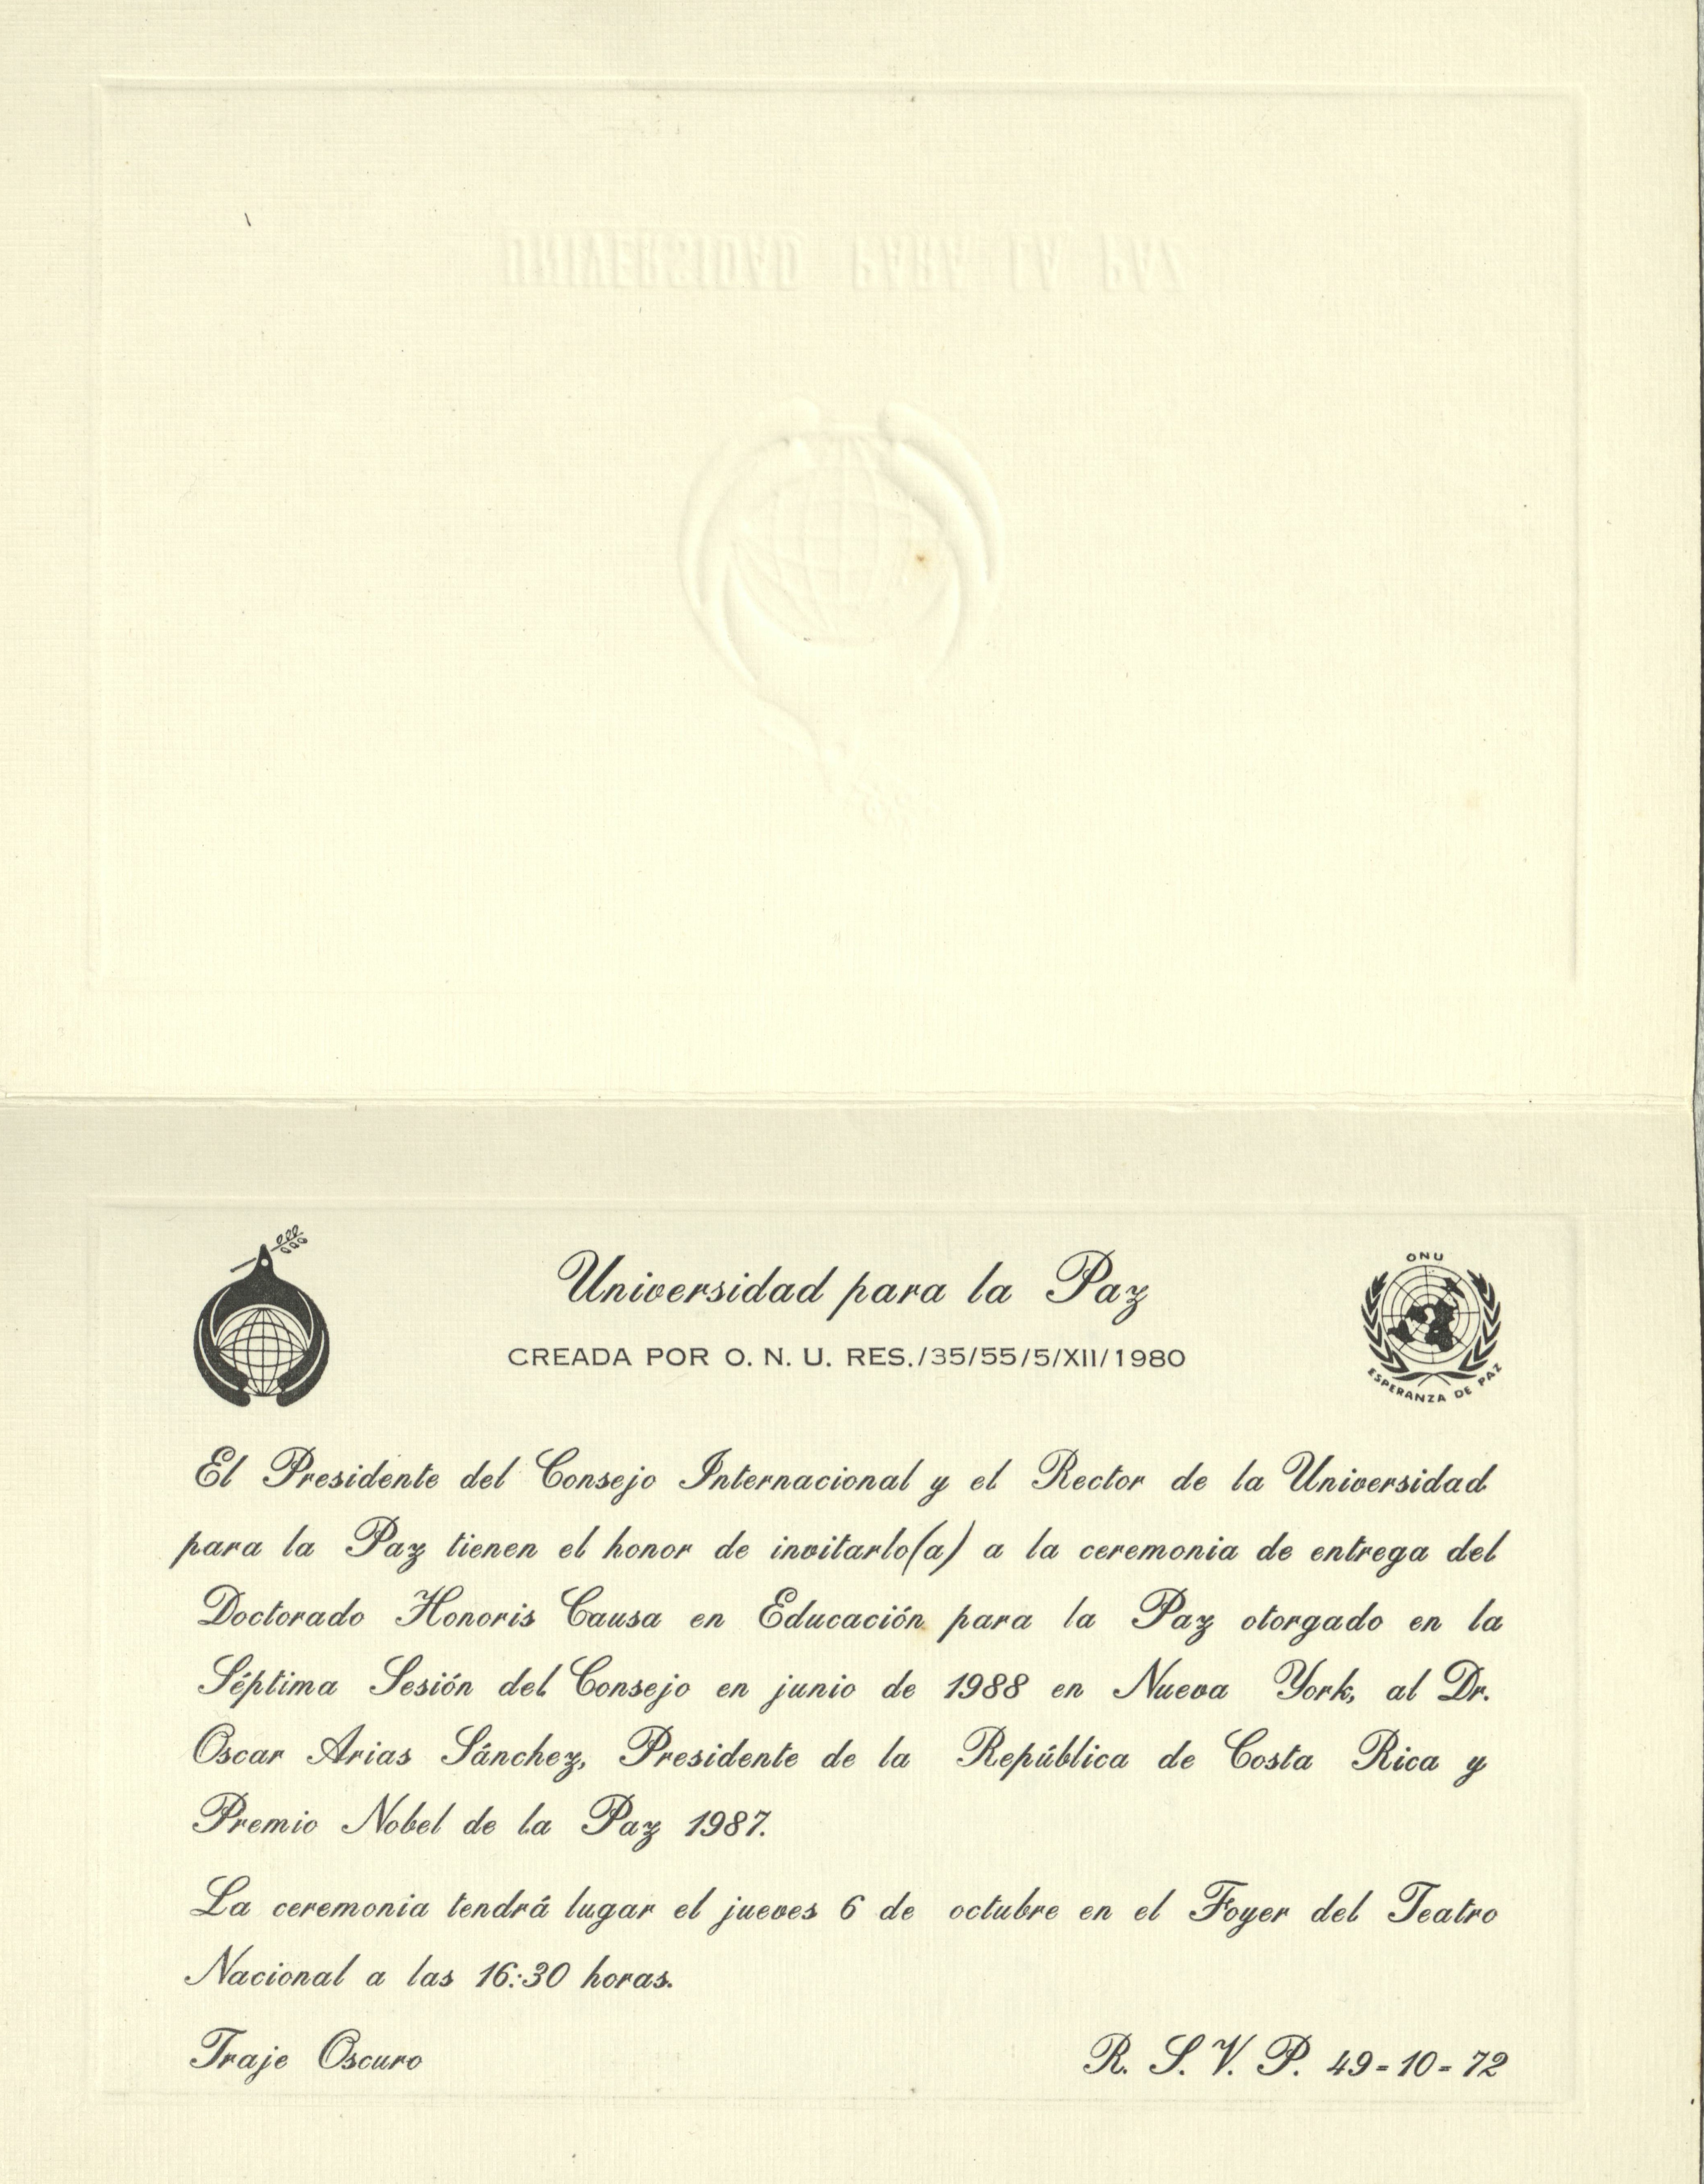 UNIVERSIDAD PARA LA PAZ
Universidad para la Paz
CREADA POR O. N. U. RES./35/55/5/XII/1980
ONU
ESPERANZA DE PAZ
El Presidente del Consejo Internacional y el Rector de la Universidad
para la Paz tienen el honor de invitarlo(a) a la ceremonia de entrega del
Doctorado Honoris Causa en Educación para la Paz otorgado en la
Séptima Sesión del Consejo en junio de 1988 en Nueva York, al Dr.
Oscar Arias Sánchez, Presidente de la República de Costa Rica y
Premio Nobel de la Paz 1987.
La ceremonia tendrá lugar el jueves 6 de octubre en el Foyer del Teatro
Nacional a las 16:30 horas.
Traje Oscuro
R. S. V. P. 49-10-72